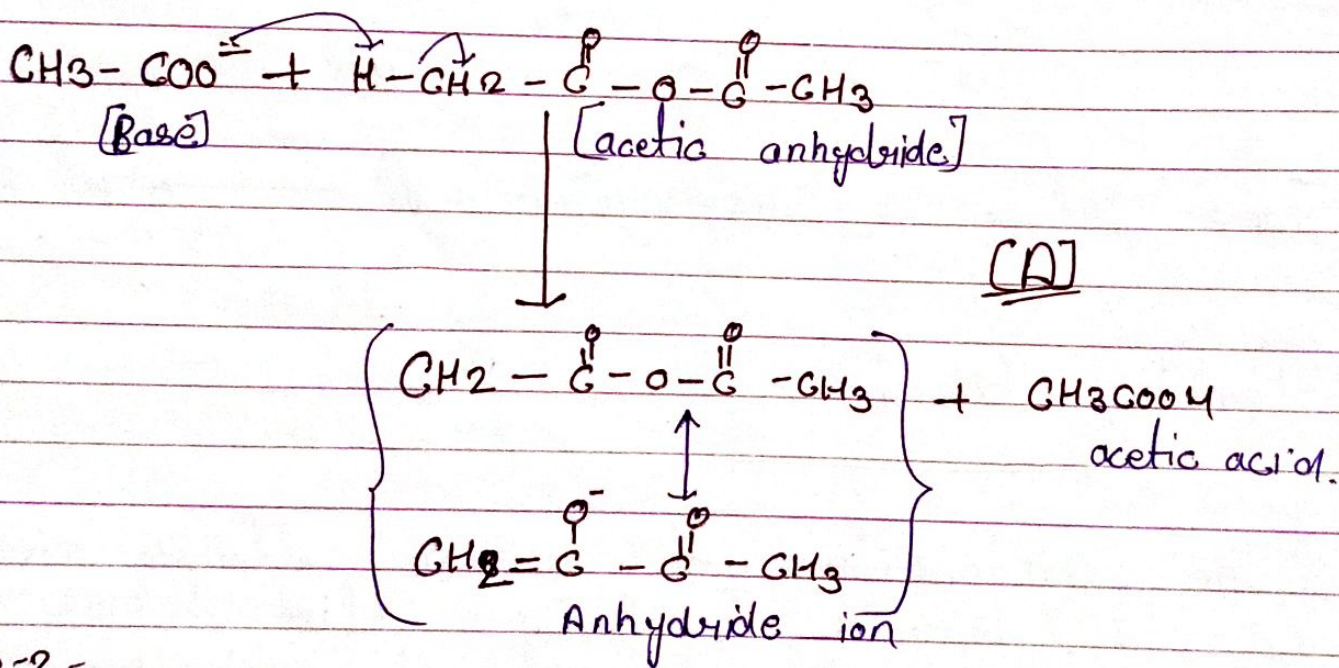 O O
CH3- COO⁻ + H-CH2 - C - O - C -CH3
[Base] [acetic anhydride]
[A]
O O
CH2 - C - O - C -CH3 + CH3COOH
acetic acid.
O⁻ O
CH2 = C - C - CH3
Anhydride ion